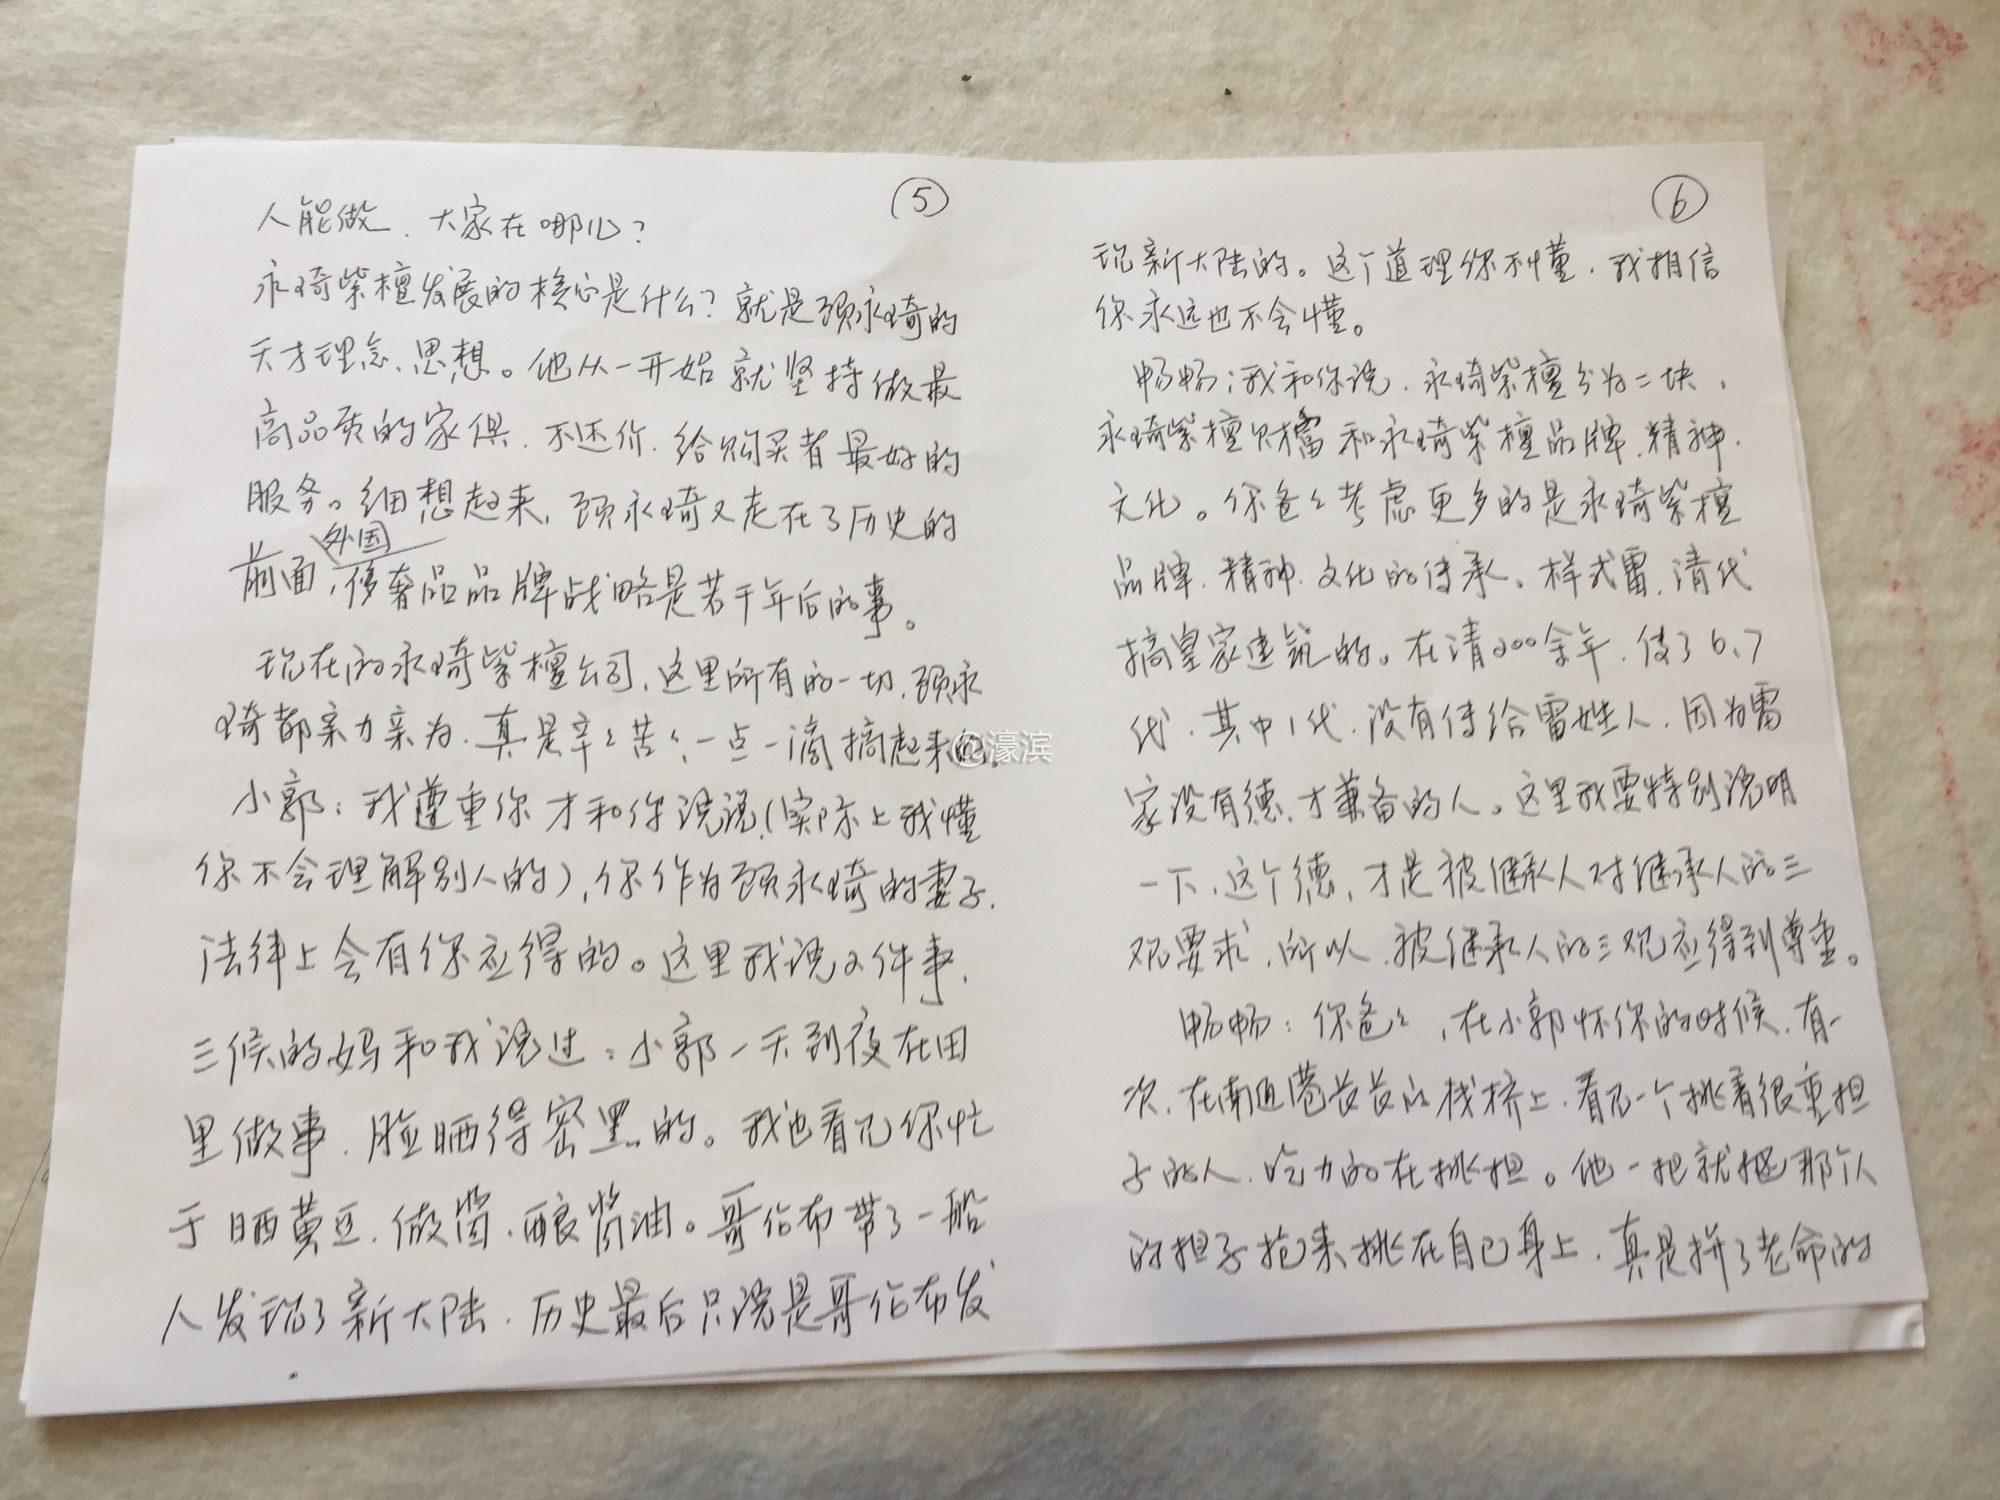 ⑤
人能做、大家在哪儿？
永琦紫檀发展的核心是什么？就是顾永琦的
天才理念、思想。他从一开始就坚持做最
高品质的家俱、不还价、给购买者最好的
服务。细想起来，顾永琦又走在了历史的
前面，外国侈奢品品牌战略是若干年后的事。
现在的永琦紫檀公司，这里所有的一切，顾永
琦都亲力亲为、真是辛辛苦苦、一点一滴搞起来的。
小郭：我尊重你才和你说说（实际上我懂
你不会理解别人的），你作为顾永琦的妻子，
法律上会有你应得的。这里我说2件事，
三候的妈和我说过：小郭一天到夜在田
里做事、脸晒得密黑的。我也看见你忙
于晒黄豆、做酱、酿酱油。哥伦布带了一船
人发现了新大陆，历史最后只说是哥伦布发
⑥
现新大陆的。这个道理你不懂，我相信
你永远也不会懂。
畅畅：我和你说，永琦紫檀分为二块，
永琦紫檀财富和永琦紫檀品牌、精神、
文化。你爸爸考虑更多的是永琦紫檀
品牌、精神、文化的传承。样式雷，清代
搞皇家建筑的。在清200余年，传了6、7
代，其中1代，没有传给雷姓人，因为雷
家没有德、才兼备的人。这里我要特别说明
一下，这个德、才是被继承人对继承人的三
观要求，所以，被继承人的三观应得到尊重。
畅畅：你爸爸，在小郭怀你的时候，有一
次，在南通港长长的栈桥上，看见一个挑着很重担
子的人，吃力的在挑担。他一把就把那个人
的担子抢来挑在自己身上，真是拼了老命的
@濠滨